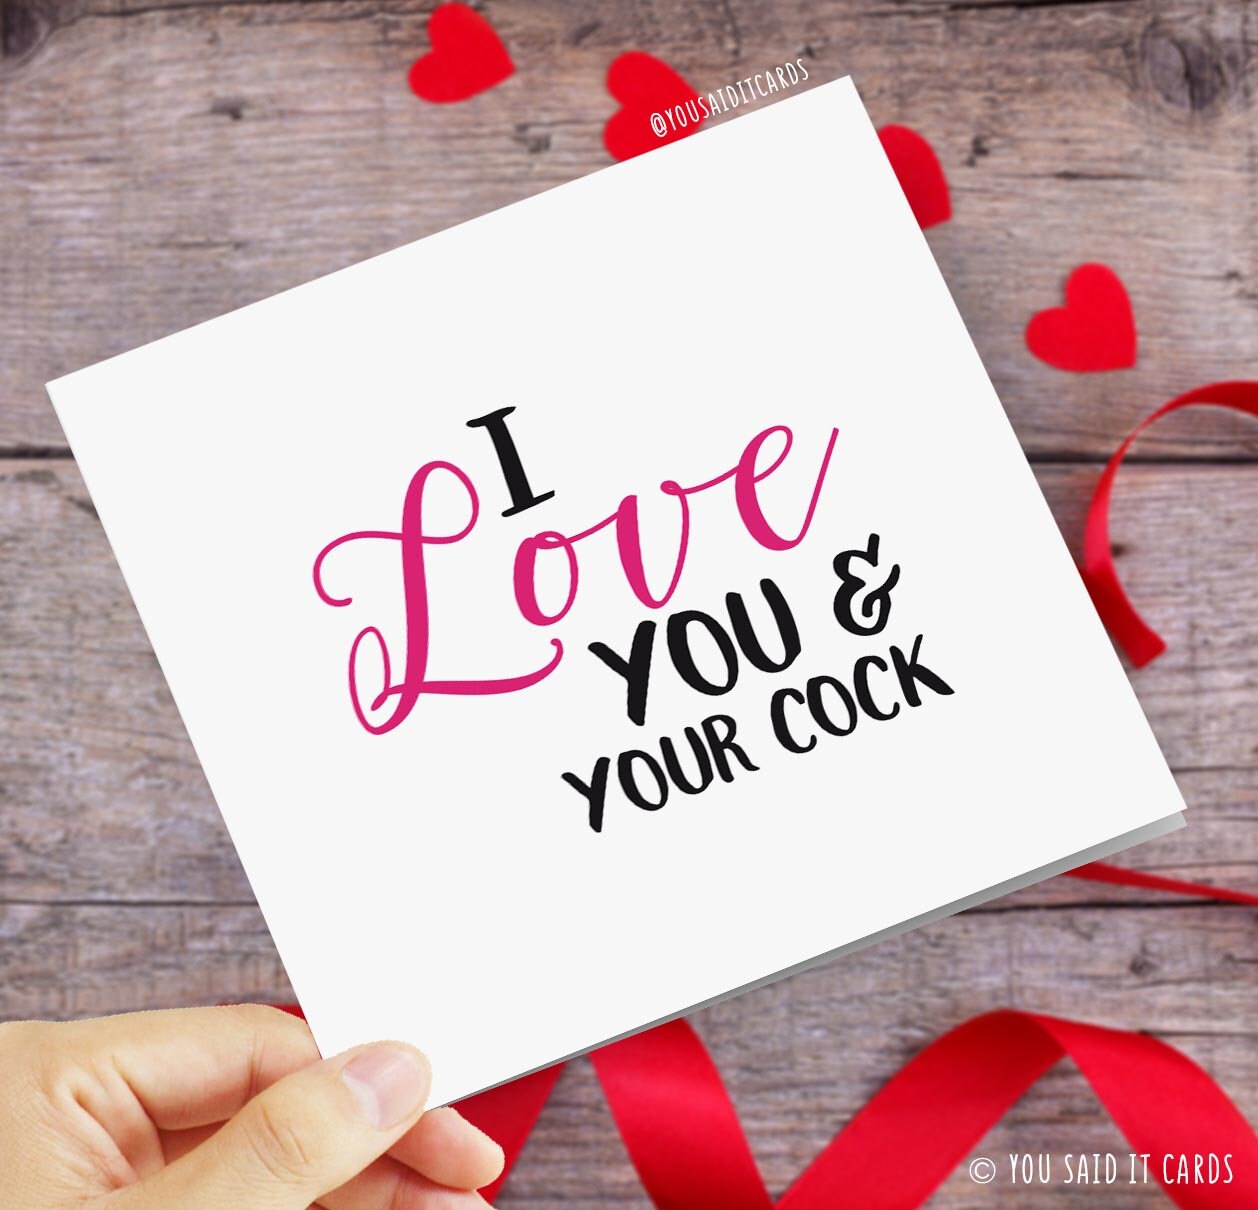 @YOUSAIDITCARDS
I
Love
YOU &
YOUR COCK
© YOU SAID IT CARDS